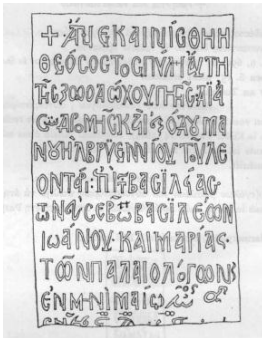 + ἈΝΕΚΑΙΝΙCΘΗ Η
ΘΕΌCΟCΤΟC ΠΥΛΗ ΑΥΤΗ
ΤΗC ΖΩΟΔΩΧΟΥ ΠΗΓΗC ΔΙΑ
CΥΝΔΡΟΜΗC ΚΑΙ ΕΞΌΔΟΥ ΜΑ
ΝΟΥΗΛ ΒΡΥΕΝΝΙΟΥ ΤΟΥ ΛΕ
ΟΝΤΑΡΙ · ΕΠΙ ΒΑCΙΛΕΙΑC
ΤΩΝ ΕΥCΕΒ ΒΑCΙΛΕΩΝ
ΙΩΆΝΟΥ · ΚΑΙ ΜΑΡΙΑC ·
ΤΩΝ ΠΑΛΑΙΟΛΌΓΩΝ
ΕΝ ΜΗΝΙ ΜΑΙΩ